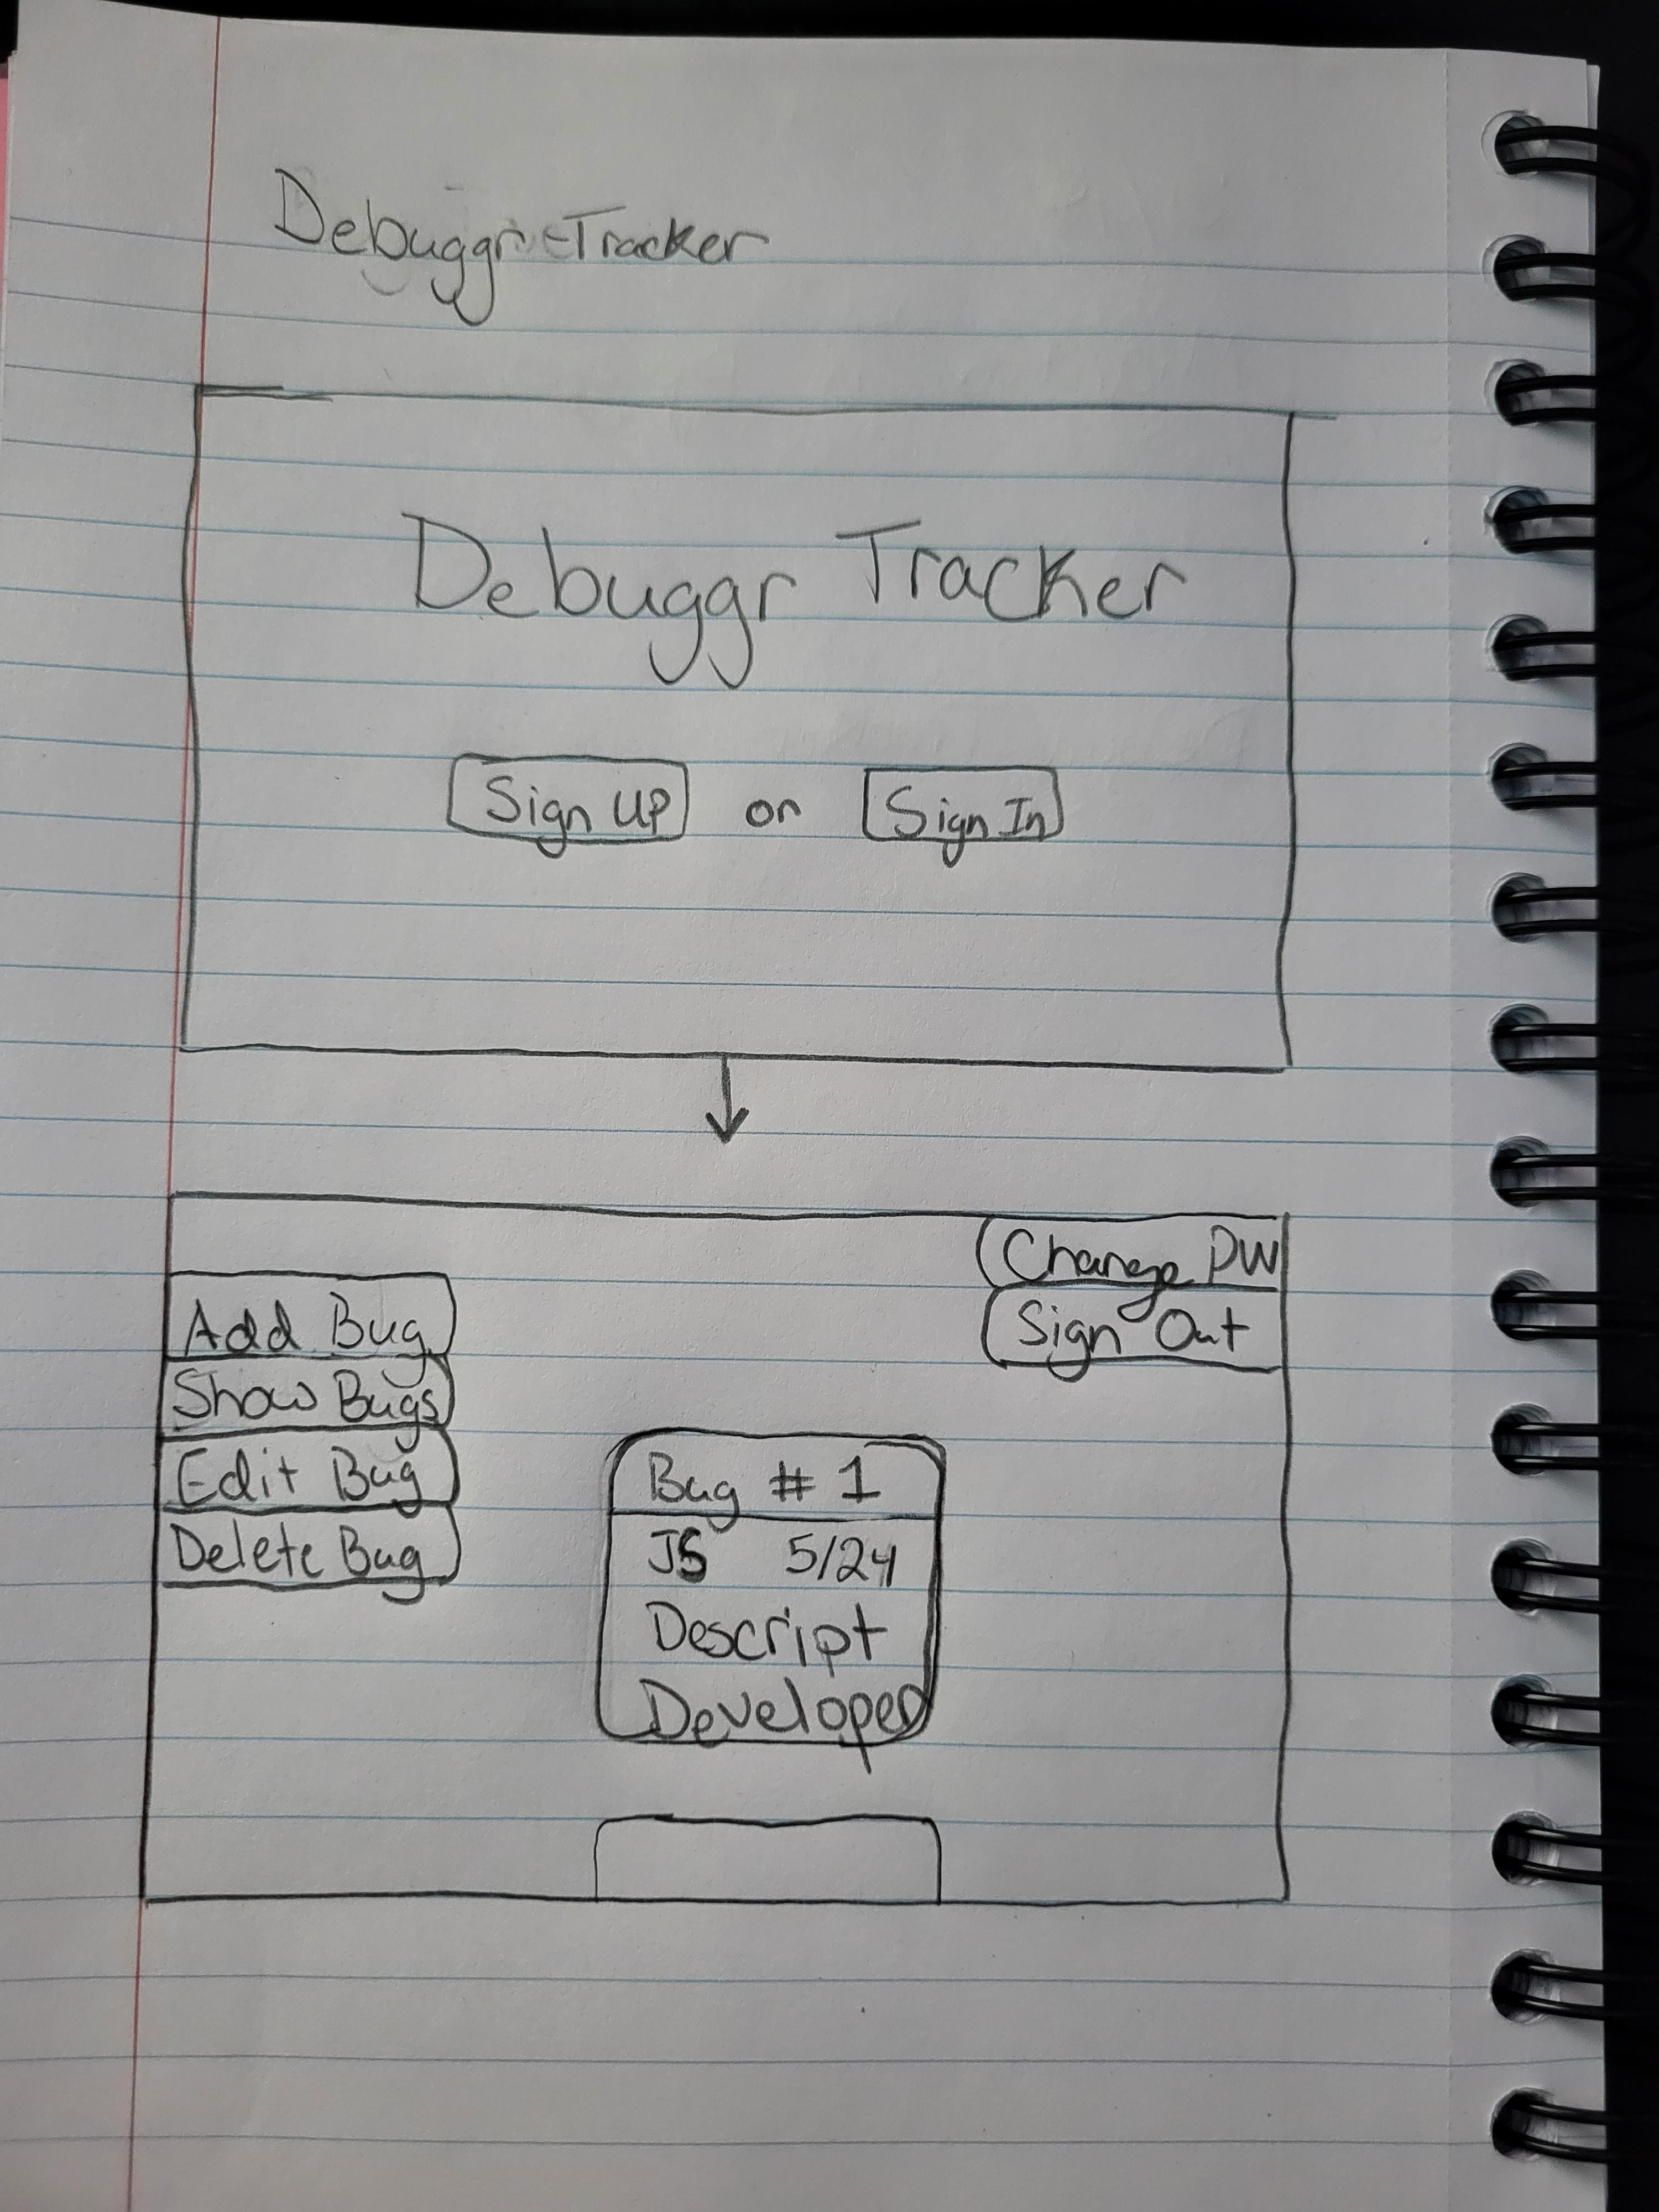 Debuggr-Tracker
Debuggr Tracker
Sign Up or Sign In
Change PW
Sign Out
Add Bug
Show Bugs
Edit Bug
Delete Bug
Bug # 1
JS 5/24
Descript
Developer